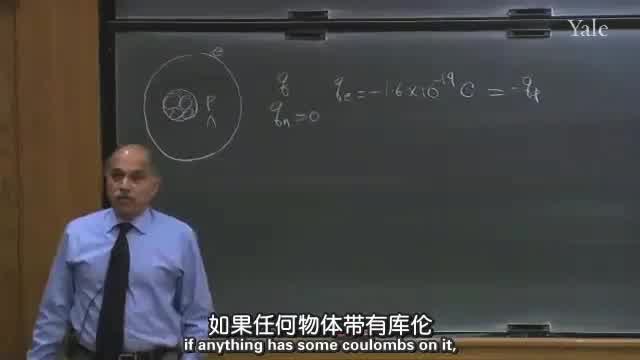 Yale
e
P
n
q
q_n = 0
q_e = -1.6 × 10^-19 C = -q_p
如果任何物体带有库伦
if anything has some coulombs on it,